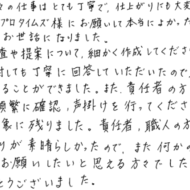 々の仕事はとても丁寧で、仕上がりにも大変
プロタイムズ様にお願いして本当によかった
お世話になりました。
査や提案について、細かく作成してくださり
対しても丁寧に回答していただいたので、
ることができました。また、責任者の方
頻繁に確認、声掛けを行ってくださ
象に残りました。責任者、職人の方
りが素晴らしかったので、また何かの
お願いしたいと思える方々でした
とうございました。